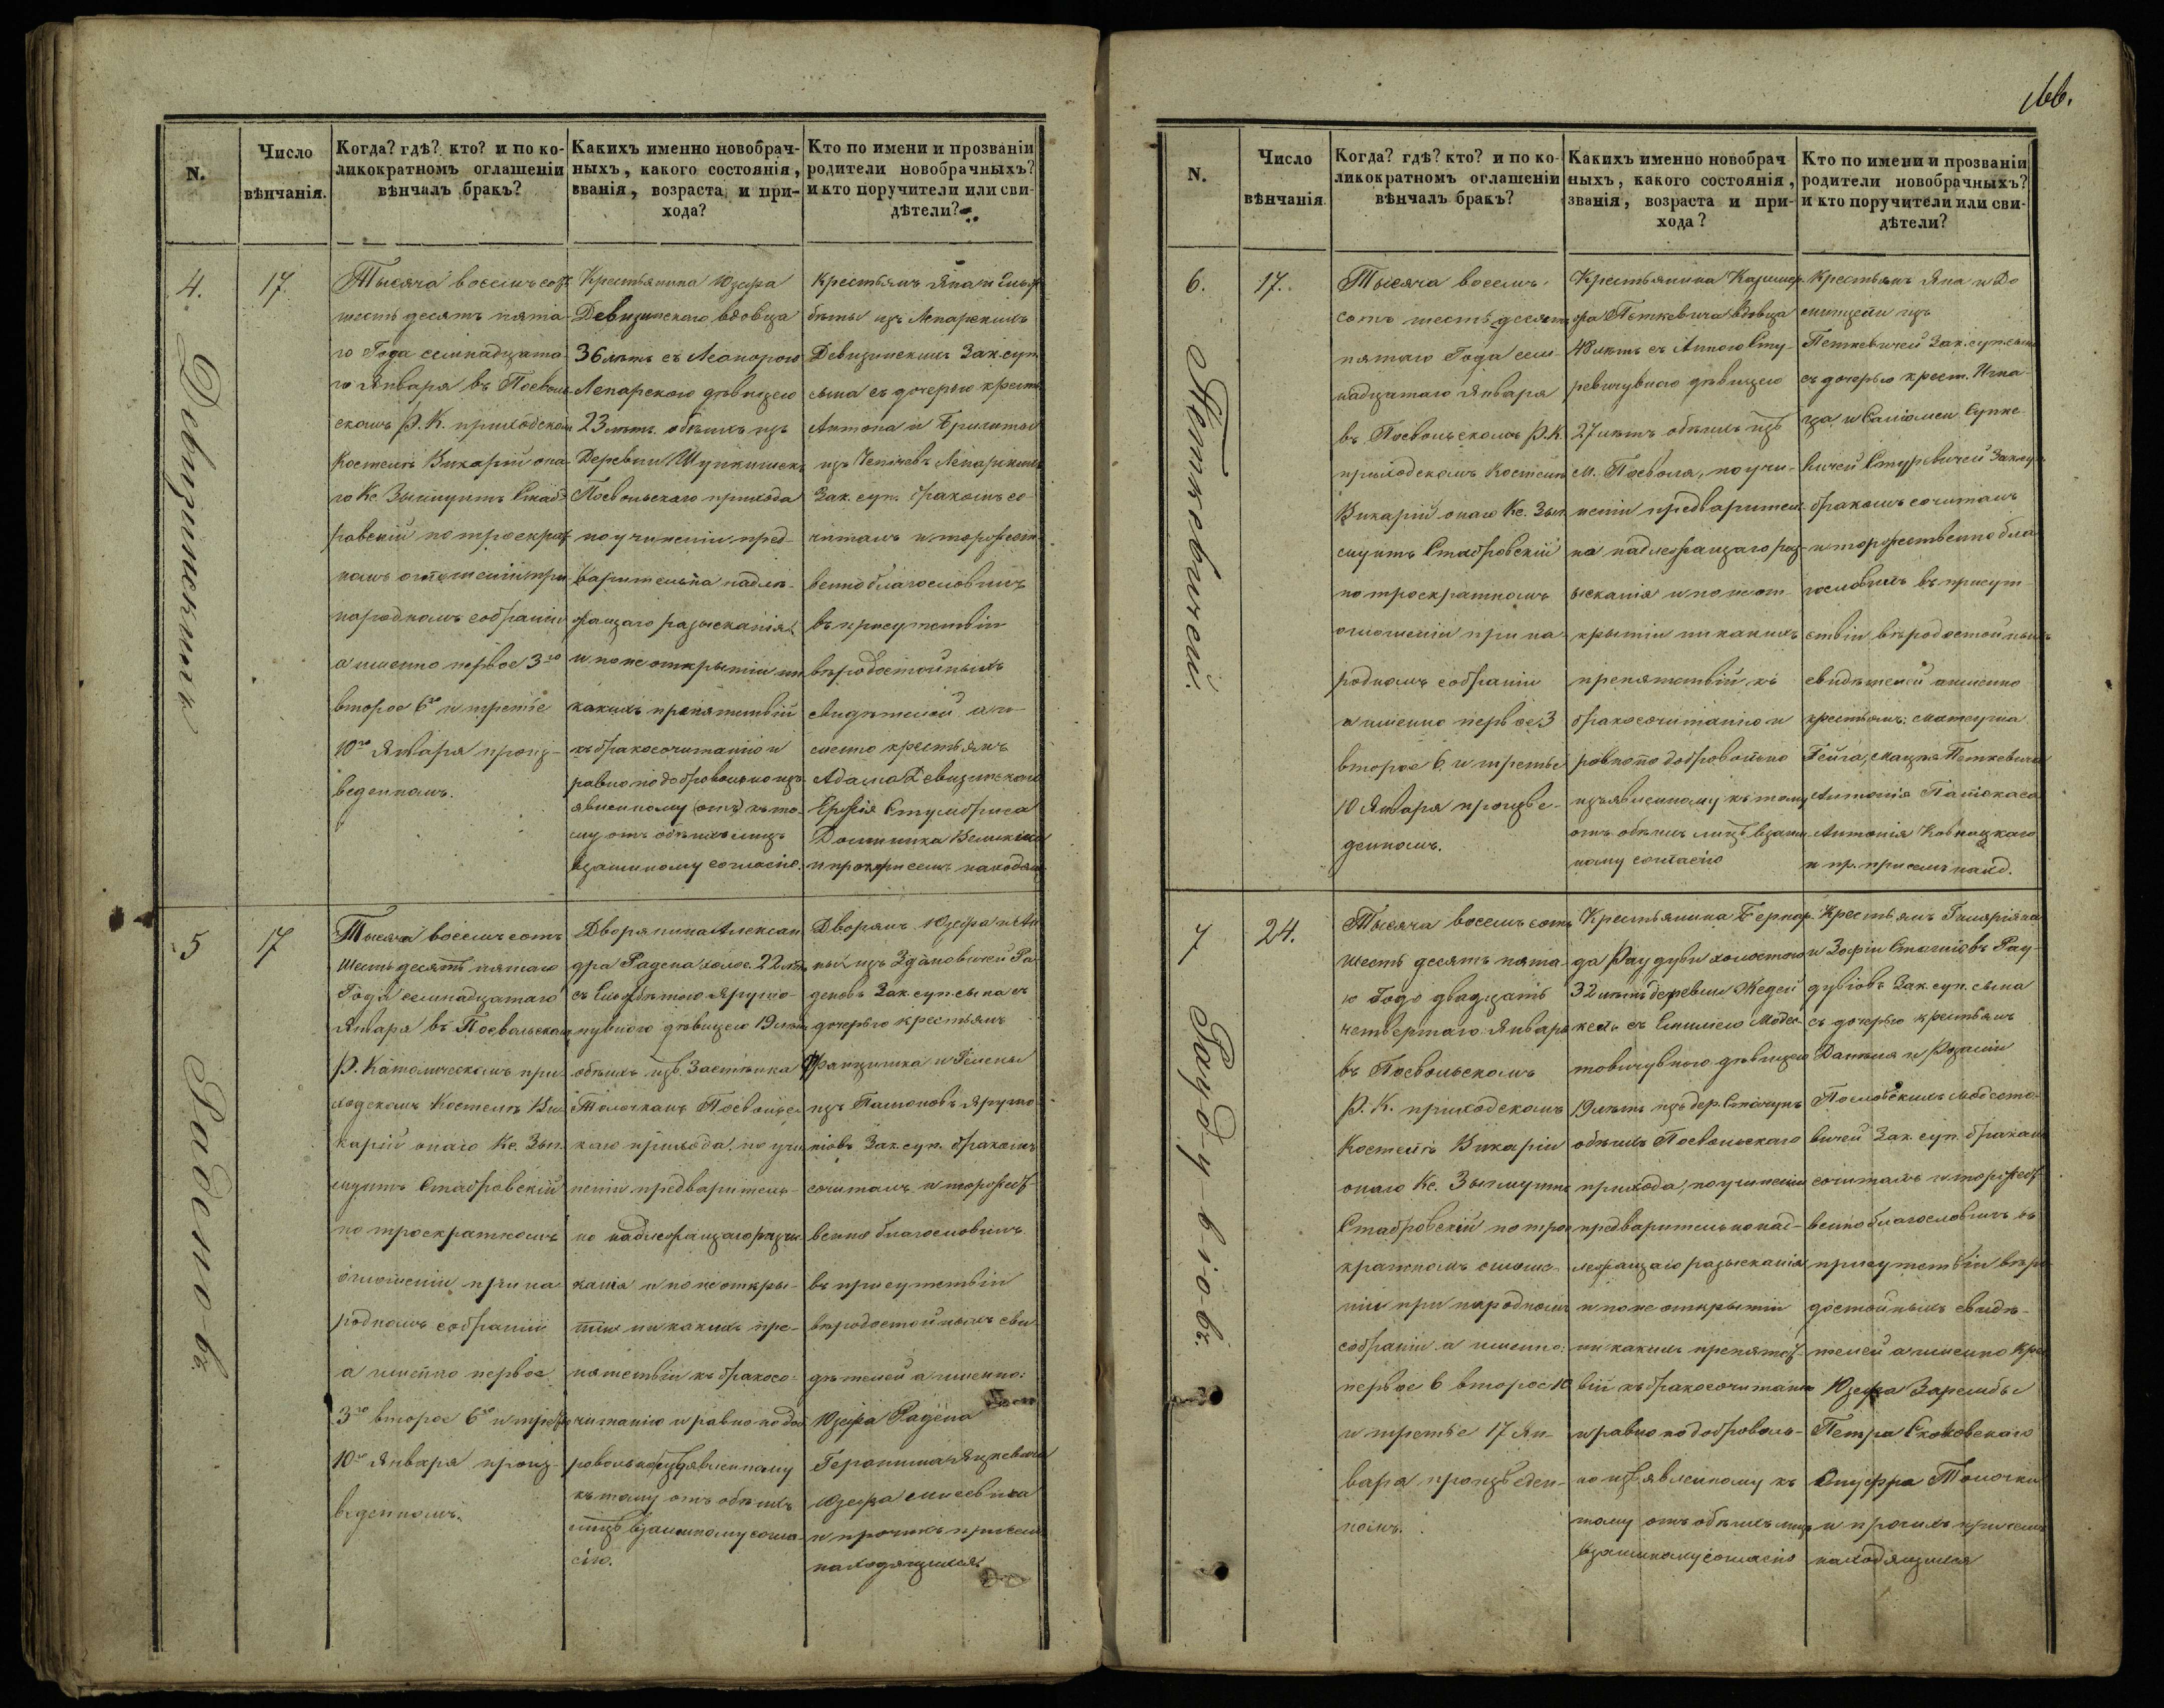 N.
Число
вѣнчанія.
Когда? гдѣ? кто? и по ко-
ликократномъ оглашеніи
вѣнчалъ бракъ?
Какихъ именно новобрач-
ныхъ, какого состоянія,
званія, возраста и при-
хода?
Кто по имени и прозванію
родители новобрачныхъ?
и кто поручители или сви-
дѣтели?
4.
Девизинскимъ
17
Тысяча восемьсотъ
шестьдесятъ пята-
го Года семнадцата-
го Января въ Посволь-
скомъ Р. К. приходскомъ
Костелѣ Викарій она-
го Кс. Зыгмунтъ Стабро-
ровскій по троекрат-
номъ оглашеніи при
народномъ собраніи
а именно первое 3го
второе 6го и третіе
10го Января произ-
веденномъ.
Крестьянина Юзефа
Девизинскаго вдовца
36 лѣтъ съ Леонорою
Лепарскою дѣвицею
23 лѣтъ обѣихъ изъ
Деревни
Посвольскаго прихода
по учиненіи пред-
варительна надле-
жащаго разысканія
и по не открытіи ни
какихъ препятствій
къ бракосочитанію и
равно по добровольно изъ-
явленному (отъ) къ то-
му отъ обѣихъ лицъ
взаимному согласію.
Крестьянъ Яна и Ельж-
бѣты изъ Лепарскихъ
Девизинскихъ Зак. суп.
сына съ дочерью крест.
Антона и Бригиты
изъ Лепарскихъ
Зак. суп. бракомъ со-
читалъ и торжест-
венно благословилъ
въ присутствіи
вѣродостойныхъ
свидѣтелей а и-
менно крестьянъ
Адама Девизинскаго
Стумбриса
Доминика
и прочихъ при семъ находящ.
5
Раденовъ
17
Тысяча восемьсотъ
шестьдесятъ пятаго
Года семнадцатаго
Января въ Посвольскомъ
Р. Католическомъ при-
ходскомъ Костелѣ Ви-
карій онаго Кс. Зыг-
мунтъ Стабровскій
по троекратномъ
оглашеніи при на-
родномъ собраніи
а именно первое
3го второе 6го и третіе
10го Января произ-
веденномъ.
Дворянина Алексан-
дра Радена холос. 22 лѣтъ
съ Ельжбѣтою
дѣвицею 19 лѣтъ
обѣихъ изъ Застѣнка
Посвольс-
каго прихода, по учи-
неніи предваритель-
но надлежащаго разыс-
канія и по не откры-
тіи ни какихъ пре-
пятствій къ бракосо-
читанію и равно по доб-
ровольно изъявленному
къ тому отъ обѣихъ
лицъ взаимному согла-
сію.
Дворянъ Юзефа и Ан-
ны изъ Здановичей Ра-
деновъ Зак. суп. сына съ
дочерью крестьянъ
Францишка и Гелены
изъ
Зак. суп. бракомъ
сочиталъ и торжест-
венно благословилъ
въ присутствіи
вѣродостойныхъ сви-
дѣтелей а именно:
Юзефа Радена
Геронима Яцкевича
Юзефа
и прочихъ при семъ
находящихся.
166.
N.
Число
вѣнчанія
Когда? гдѣ? кто? и по ко-
ликократномъ оглашеніи
вѣнчалъ бракъ?
Какихъ именно новобрач
ныхъ, какого состоянія,
званія, возраста и при-
хода?
Кто по имени и прозванію
родители новобрачныхъ?
и кто поручители или сви-
дѣтели?
6.
Петкевичей.
17.
Тысяча восемь-
сотъ шестьдесятъ
пятаго Года сем-
надцатаго Января
въ Посвольскомъ Р. К.
приходскомъ Костелѣ
Викарій онаго Кс. Зыг-
мунтъ Стабровскій
по троекратномъ
оглашеніи при на-
родномъ собраніи
а именно первое 3
второе 6 и третіе
10 Января произве-
денномъ.
Крестьянина Казими-
ра Петкевича вдовца
48 лѣтъ съ Анною Сту-
ревичувною дѣвицею
27 лѣтъ обѣихъ изъ
м. Посволя, по учи-
неніи предварител-
но надлежащаго раз-
ысканія и по не от-
крытіи ни какихъ
препятствій къ
бракосочитанію и
равно по добровольно
изъявленному къ тому
отъ обѣихъ лицъ взаим-
ному согласію
Крестьянъ Яна и До-
изъ
Петкевичей Зак. суп. сына
съ дочерью крест. Игна-
ца и Саломеи
Стуревичей Зак. суп.
бракомъ сочиталъ
и торжественно бла-
гословилъ въ присут-
ствіи вѣродостойныхъ
свидѣтелей а именно
крестьянъ: Матеуша
Гейга, Мацея Петкевича
Антонія
Антонія
и пр. при семъ наход.
7
Раудувіовъ.
24.
Тысяча восемьсотъ
шестьдесятъ пята-
го Года двадцать
четвертаго Января
въ Посвольскомъ
Р. К. приходскомъ
Костелѣ Викарій
онаго Кс. Зыгмунтъ
Стабровскій по трое-
кратномъ оглаше-
ніи при народномъ
собраніи а именно:
первое 6 второе 10
и третіе 17 Ян-
варя произведен-
номъ.
Крестьянина Бернар-
да Раудувя холостаго
32 лѣтъ деревни
съ Емиліею Модес-
товичувною дѣвицею
19 лѣтъ изъ дер.
обѣихъ Посвольскаго
прихода, по учиненіи
предварительно над-
лежащаго разысканія
и по не открытіи
ни какихъ препятст-
вій къ бракосочитанію
и равно по доброволь-
но изъявленному къ
тому отъ обѣихъ лицъ
взаимному согласію
Крестьянъ
и Зофіи Рау-
дувіовъ Зак. суп. сына
съ дочерью крестьянъ
Даніила и Розаліи
Модесто-
вичей Зак. суп. бракомъ
сочиталъ и торжест-
венно благословилъ въ
присутствіи вѣро-
достойныхъ свидѣ-
телей а именно Кре.
Юзефа Зарембы
Петра
Онуфра Толочки
и прочихъ при семъ
находящихся